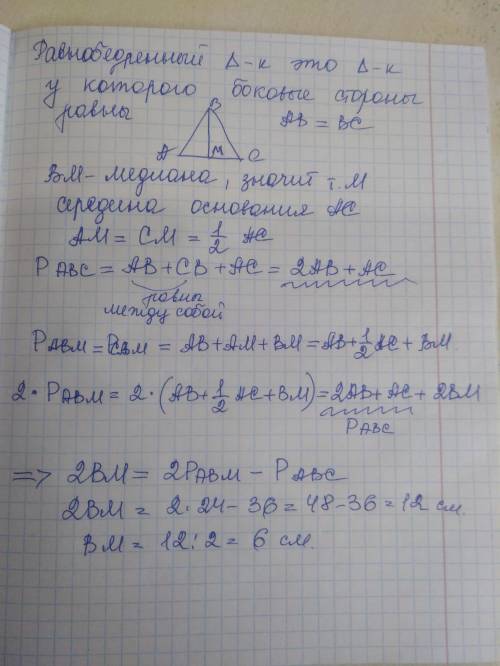 Равнобедренный Δ-к это Δ-к
у которого боковые стороны
равны
AB = BC
B
A
M
C
BM - медиана, значит т. M
середина основания AC
AM = CM = 1/2 AC
P ABC = AB + CB + AC = 2AB + AC
равны
между собой
P ABM = P CBM = AB + AM + BM = AB + 1/2 AC + BM
2 · P ABM = 2 · (AB + 1/2 AC + BM) = 2AB + AC + 2BM
P ABC
=> 2BM = 2P ABM - P ABC
2BM = 2 · 24 - 36 = 48 - 36 = 12 см.
BM = 12 : 2 = 6 см.